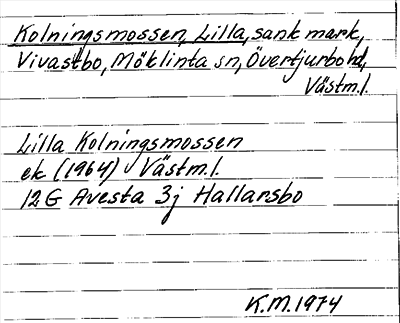 Kolningsmossen, Lilla, sank mark,
Vivastbo, Möklinta sn, Övertjurbo hd,
Västm.l.
Lilla Kolningsmossen
ek (1964) Västm.l.
12G Avesta 3j Hallarsbo
K.M. 1974